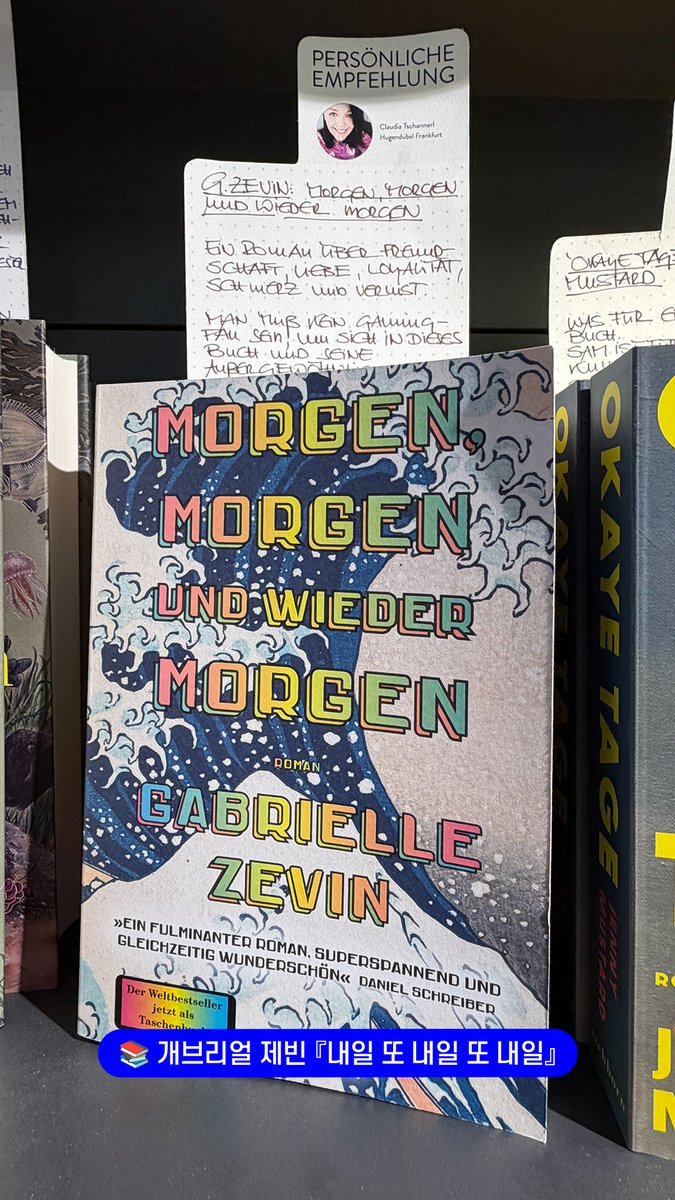 PERSÖNLICHE
EMPFEHLUNG
Claudia Tschannerl
Hugendubel Frankfurt
G. ZEVIN: MORGEN, MORGEN
UND WIEDER MORGEN
EIN ROMAN ÜBER FREUND-
SCHAFT, LIEBE, LOYALITÄT,
SCHMERZ UND VERLUST.
MAN MUß KEIN GAMING-
FAN SEIN, UM SICH IN DIESES
BUCH UND SEINE
'OKAYE TAGE
MUSTARD
WAS FÜR
BUCH.
MORGEN,
MORGEN
UND WIEDER
MORGEN
ROMAN
GABRIELLE
ZEVIN
»EIN FULMINANTER ROMAN, SUPERSPANNEND UND
GLEICHZEITIG WUNDERSCHÖN« DANIEL SCHREIBER
Der Weltbestseller
jetzt als
OKAYE TAGE
OKAYE TAGE
JENNY
MUSTARD
📚 개브리얼 제빈 『내일 또 내일 또 내일』